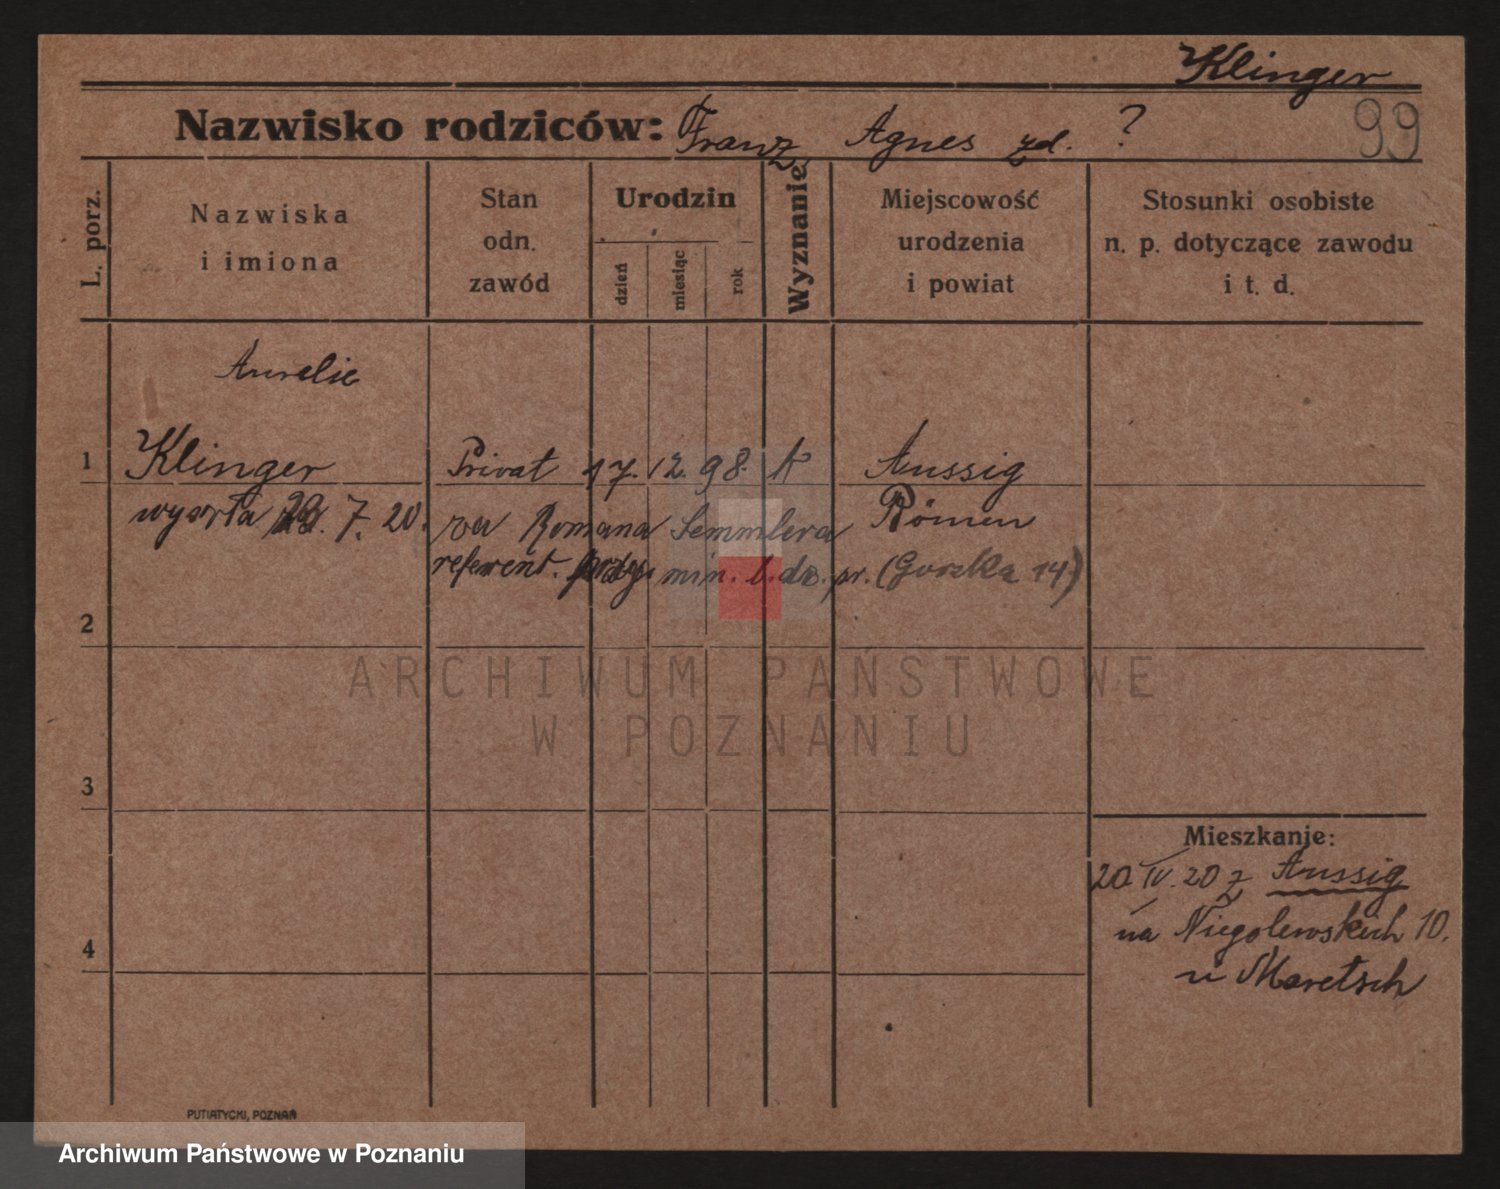 Klinger
99
Nazwisko rodziców: Franz Agnes zd. ?
L. porz.
Nazwiska
i imiona
Stan
odn.
zawód
Urodzin
dzień
miesiąc
rok
Wyznanie
Miejscowość
urodzenia
i powiat
Stosunki osobiste
n. p. dotyczące zawodu
i t. d.
Aurelie
1 Klinger Privat 17. 12. 98. k Aussig
wyszła 7. 20. za Romana Semmlera Bömen
referent. przy min. b. dz. pr. (Gorzka 14)
2
3
4
Mieszkanie:
20. IV. 20 z Aussig
na Niegolewskich 10.
u Maretsch
PUTIATYCKI, POZNAŃ
ARCHIWUM PAŃSTWOWE
W POZNANIU
Archiwum Państwowe w Poznaniu